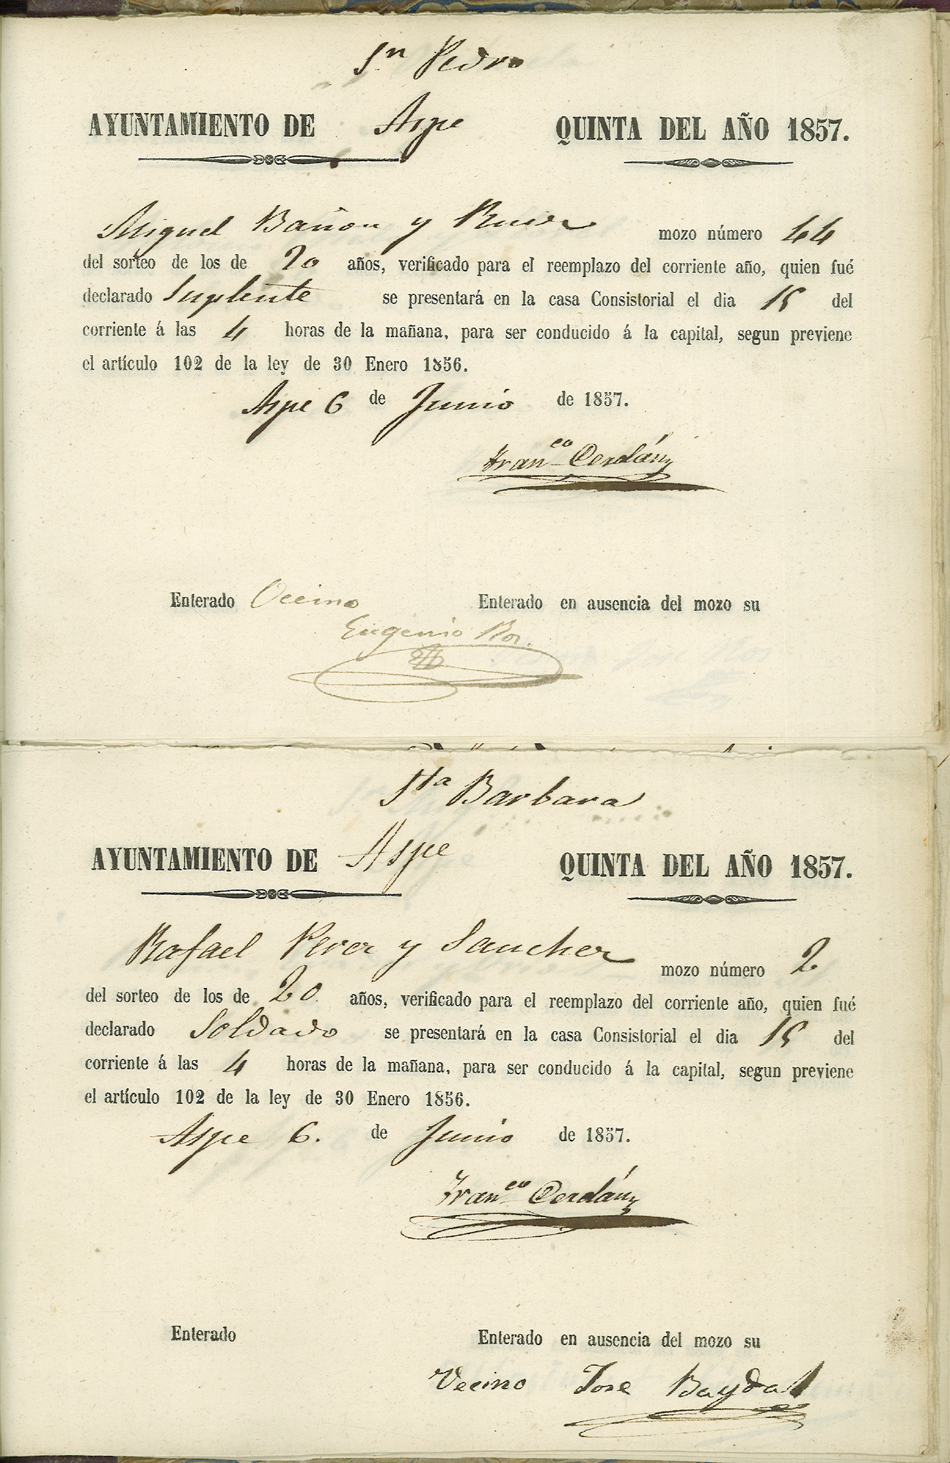 Sn Pedro
AYUNTAMIENTO DE Aspe QUINTA DEL AÑO 1857.
Miguel Bañon y Ruiz mozo número 44
del sorteo de los de 20 años, verificado para el reemplazo del corriente año, quien fué
declarado Suplente se presentará en la casa Consistorial el dia 15 del
corriente á las 4 horas de la mañana, para ser conducido á la capital, segun previene
el artículo 102 de la ley de 30 Enero 1856.
Aspe 6 de Junio de 1857.
Franco Cerdán
Enterado Vecino Enterado en ausencia del mozo su
Eugenio Bor.
Sta Barbara
AYUNTAMIENTO DE Aspe QUINTA DEL AÑO 1857.
Rafael Perez y Sanchez mozo número 2
del sorteo de los de 20 años, verificado para el reemplazo del corriente año, quien fué
declarado Soldado se presentará en la casa Consistorial el dia 15 del
corriente á las 4 horas de la mañana, para ser conducido á la capital, segun previene
el artículo 102 de la ley de 30 Enero 1856.
Aspe 6. de Junio de 1857.
Franco Cerdán
Enterado Enterado en ausencia del mozo su
Vecino Jose Baydal